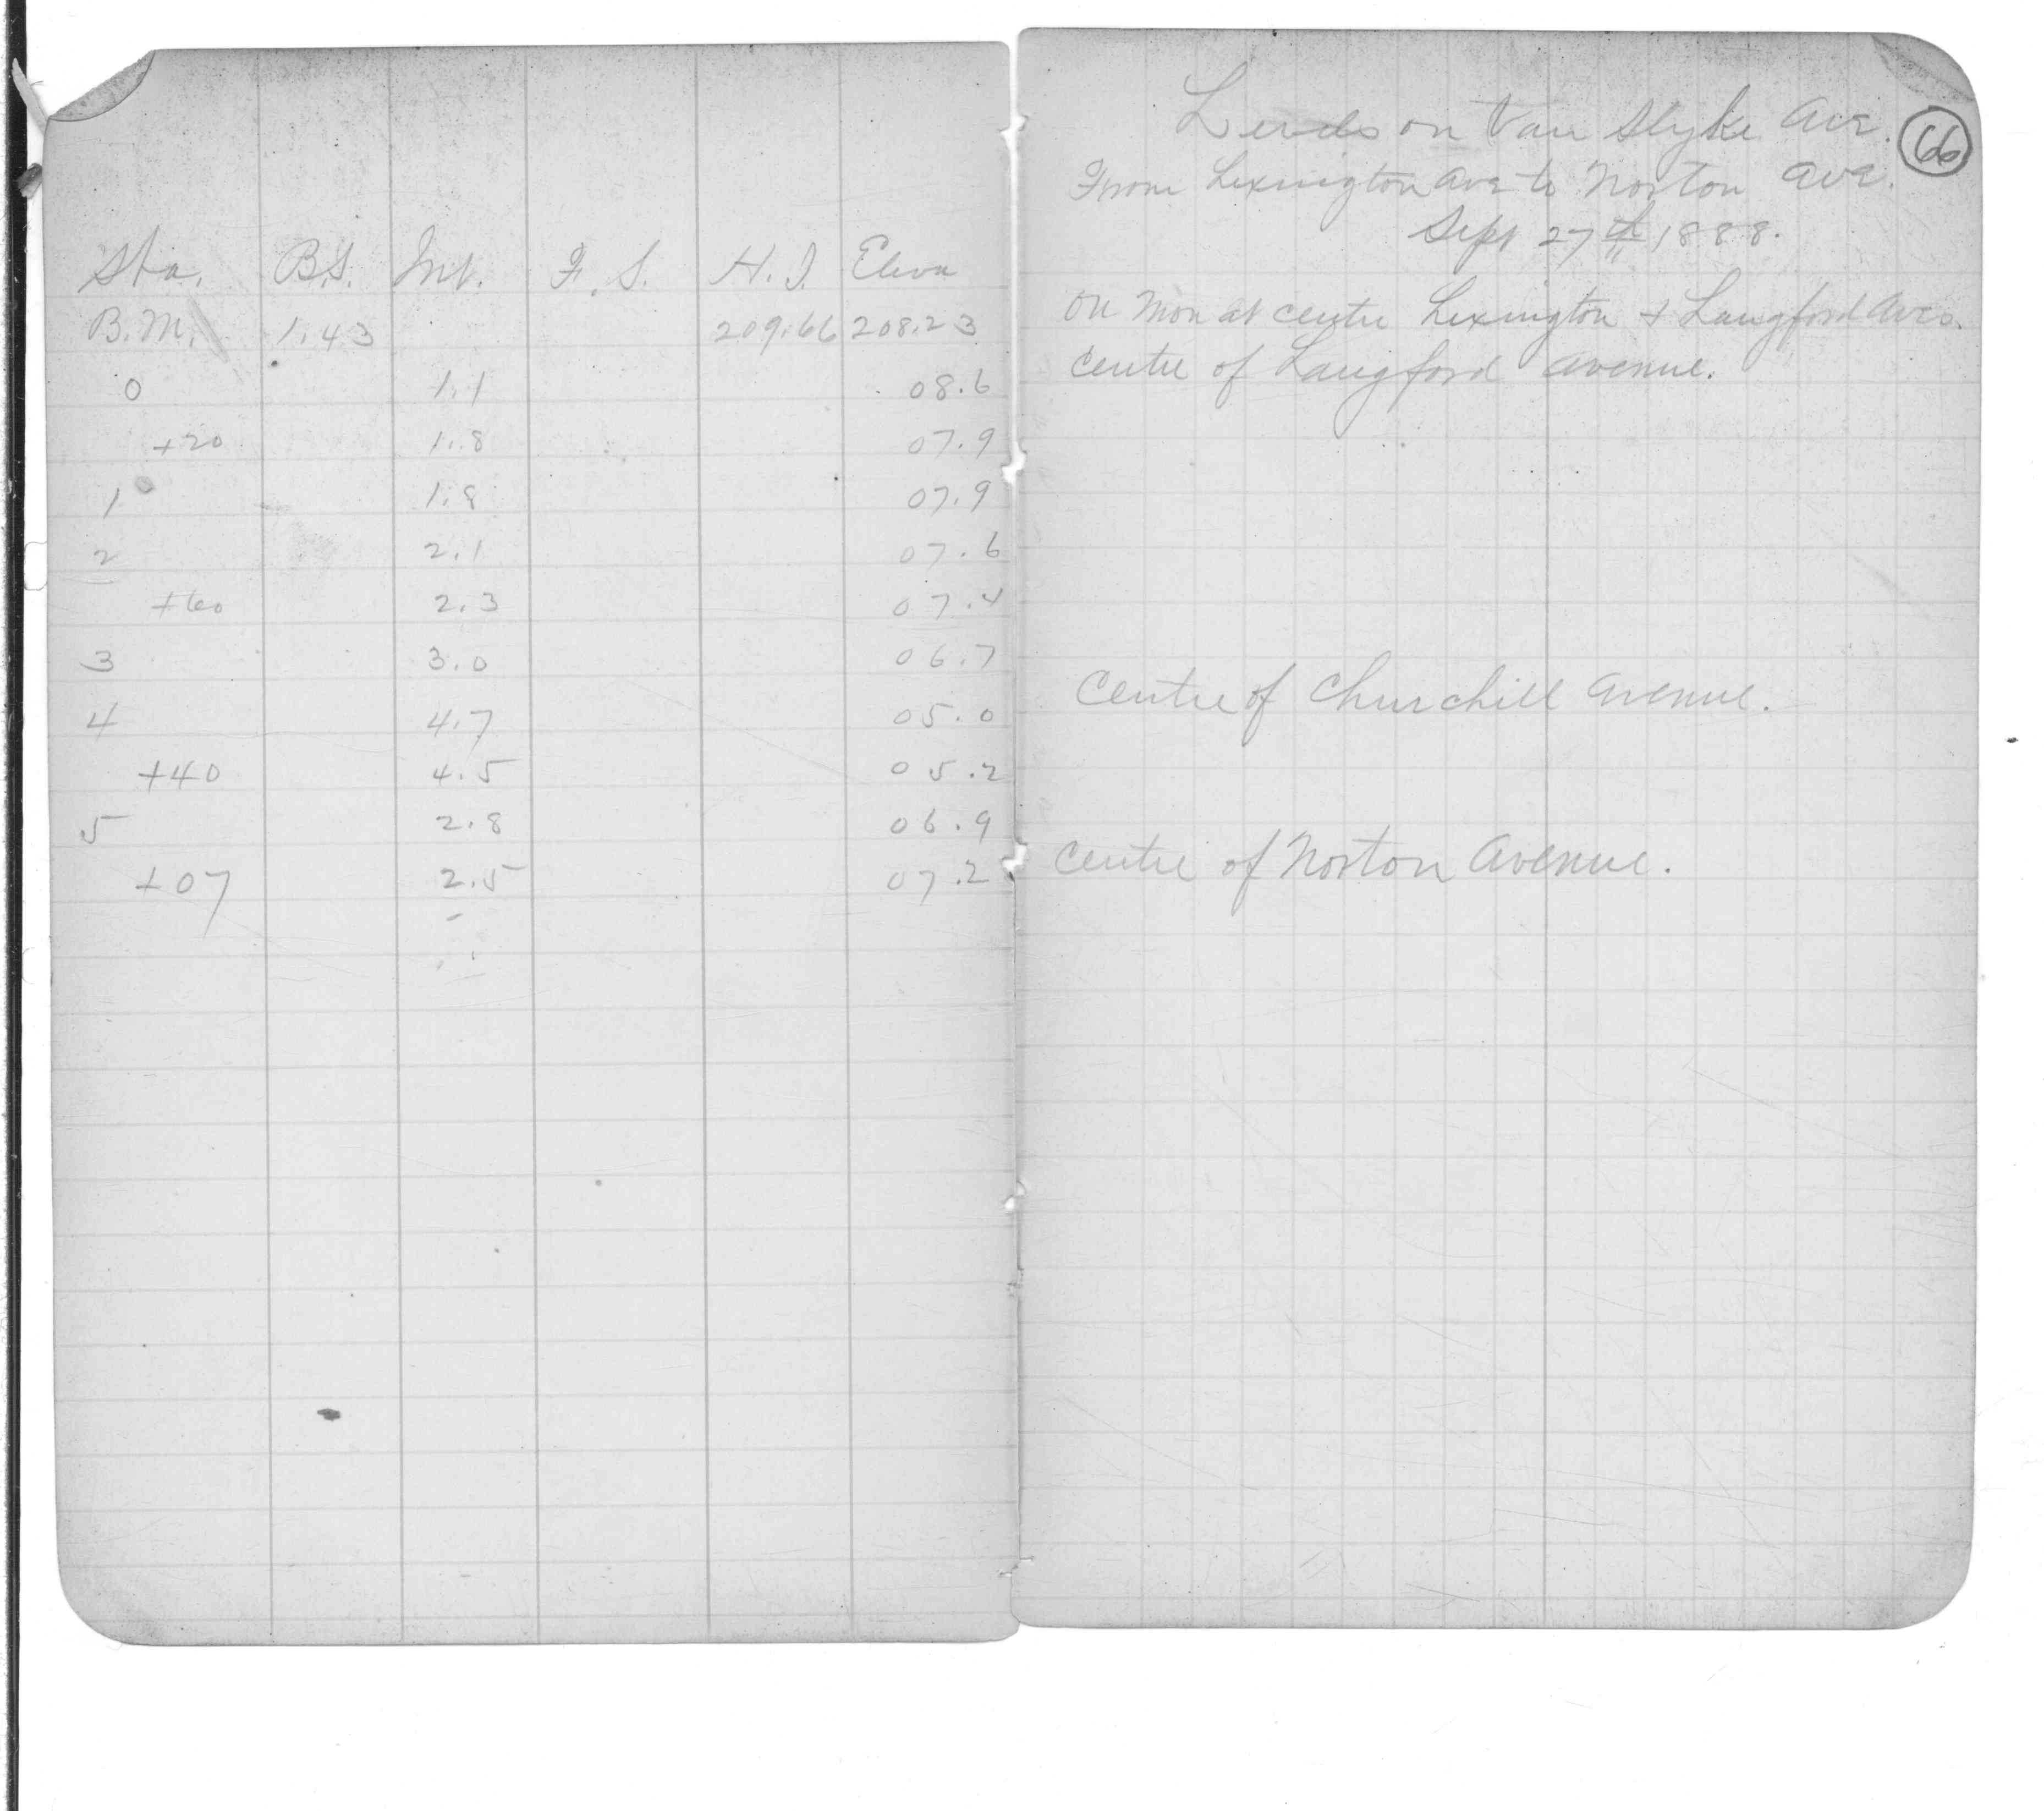 Sta. B.S. Int. F.S. H.I. Eleva
B.M. 1.43 209.66 208.23
0 1.1 08.6
+20 1.8 07.9
1 1.8 07.9
2 2.1 07.6
+60 2.3 07.4
3 3.0 06.7
4 4.7 05.0
+40 4.5 05.2
5 2.8 06.9
+07 2.5 07.2
Levels on Van Slyke Ave.
66
From Lexington Ave to Norton Ave.
Sept 27th 1888.
On Mon at centre Lexington + Langford Aves.
Centre of Langford Avenue.
Centre of Churchill Avenue.
Centre of Norton Avenue.